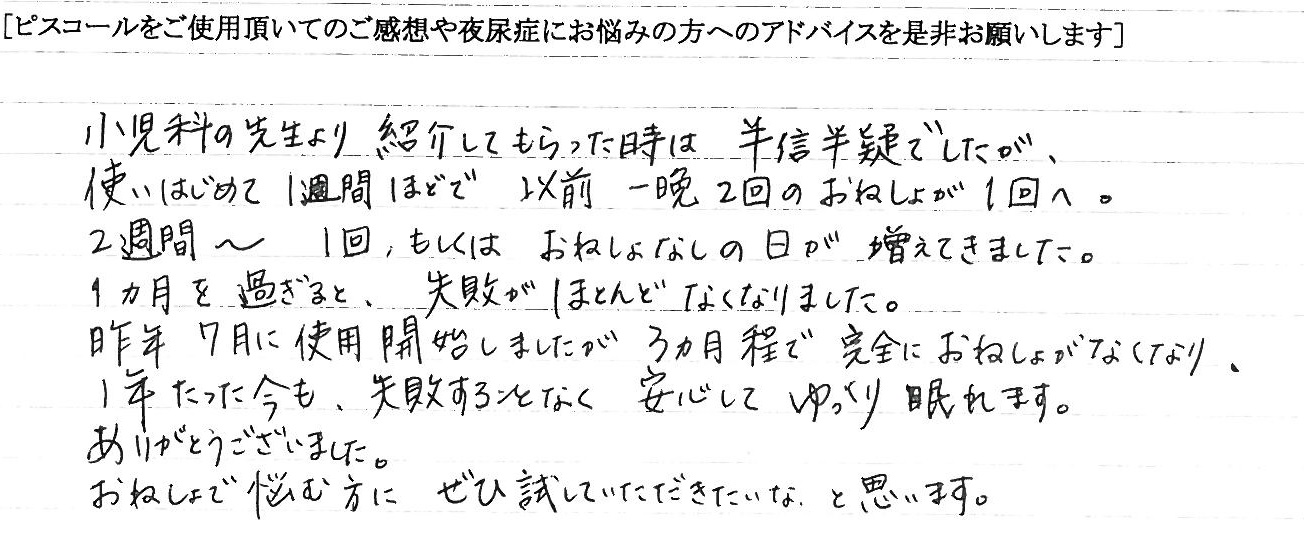 [ピスコールをご使用頂いてのご感想や夜尿症にお悩みの方へのアドバイスを是非お願いします]
小児科の先生より 紹介してもらった時は 半信半疑でしたが、
使いはじめて 1週間ほどで 以前 一晩 2回の おねしょが 1回へ。
2週間〜 1回、もしくは おねしょなしの 日が 増えてきました。
1ヵ月を 過ぎると、 失敗が ほとんど なくなりました。
昨年 7月に 使用開始しましたが 3ヵ月程で 完全に おねしょがなくなり、
1年たった今も、失敗することなく 安心して ゆっくり 眠れます。
ありがとうございました。
おねしょで 悩む方に ぜひ試していただきたいな、と思います。